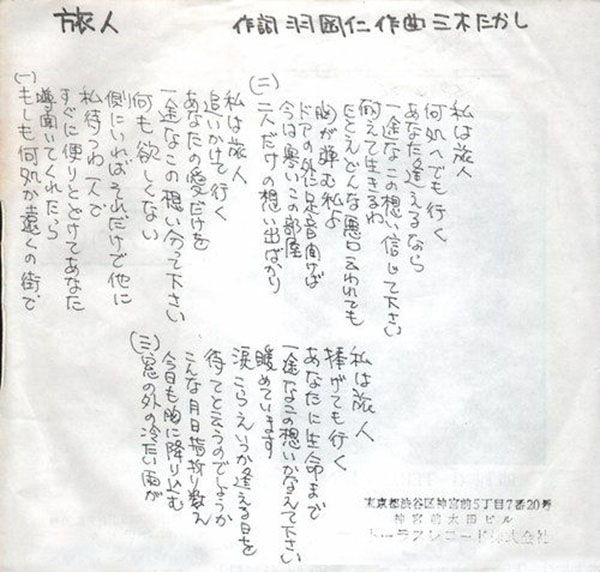 旅人
作詞 羽岡仁 作曲 三木たかし
(一)もしも何処か遠くの街で
噂聞いてくれたら
すぐに便りとどけてあなた
私待つわ一人で
側にいればそれだけで他に
何も欲しくない
一途なこの想い分って下さい
あなたの愛だけを
追いかけて行く
私は旅人
(二)二人だけの想い出ばかり
今は寒いこの部屋
ドアの外に足音聞けば
胸が弾む私よ
たとえどんな悪口云われても
耐えて生きるわ
一途なこの想い信じて下さい
あなた逢えるなら
何処へでも行く
私は旅人
(三)窓の外の冷たい雨が
今日も胸に降り込む
こんな月日指折り数え
待てと云うのでしょうか
涙こらえいつか逢える日を
暖めています
一途なこの想いかなえて下さい
あなたに生命まで
捧げても行く
私は旅人
東京都渋谷区神宮前5丁目7番20号
神宮前太田ビル
トーラスレコード株式会社